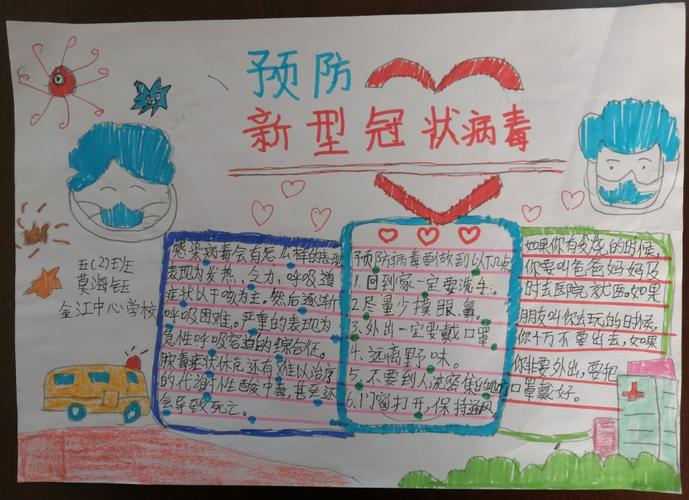 预防
新型冠状病毒
五(2)班
莫海钰
金江中心学校
感染病毒会有怎么样的表现
表现为发热、乏力、呼吸道
症状以干咳为主。然后逐渐
呼吸困难。严重的表现为
急性呼吸窘迫的综合征。
脓毒症状休克还有难以治疗
的代谢性酸中毒,甚至还
会导致死亡。
预防病毒要做到以下几点
1.回到家一定要洗手。
2.尽量少摸眼、鼻。
3.外出一定要戴口罩
4.远离野味。
5.不要到人流密集的地方
6.门窗打开,保持通风
如果你有发烧的时候,
你要叫爸爸妈妈及
时去医院就医。如果
朋友叫你去玩的时候,
你千万不要出去,如果
你非要外出,要把
口罩戴好。